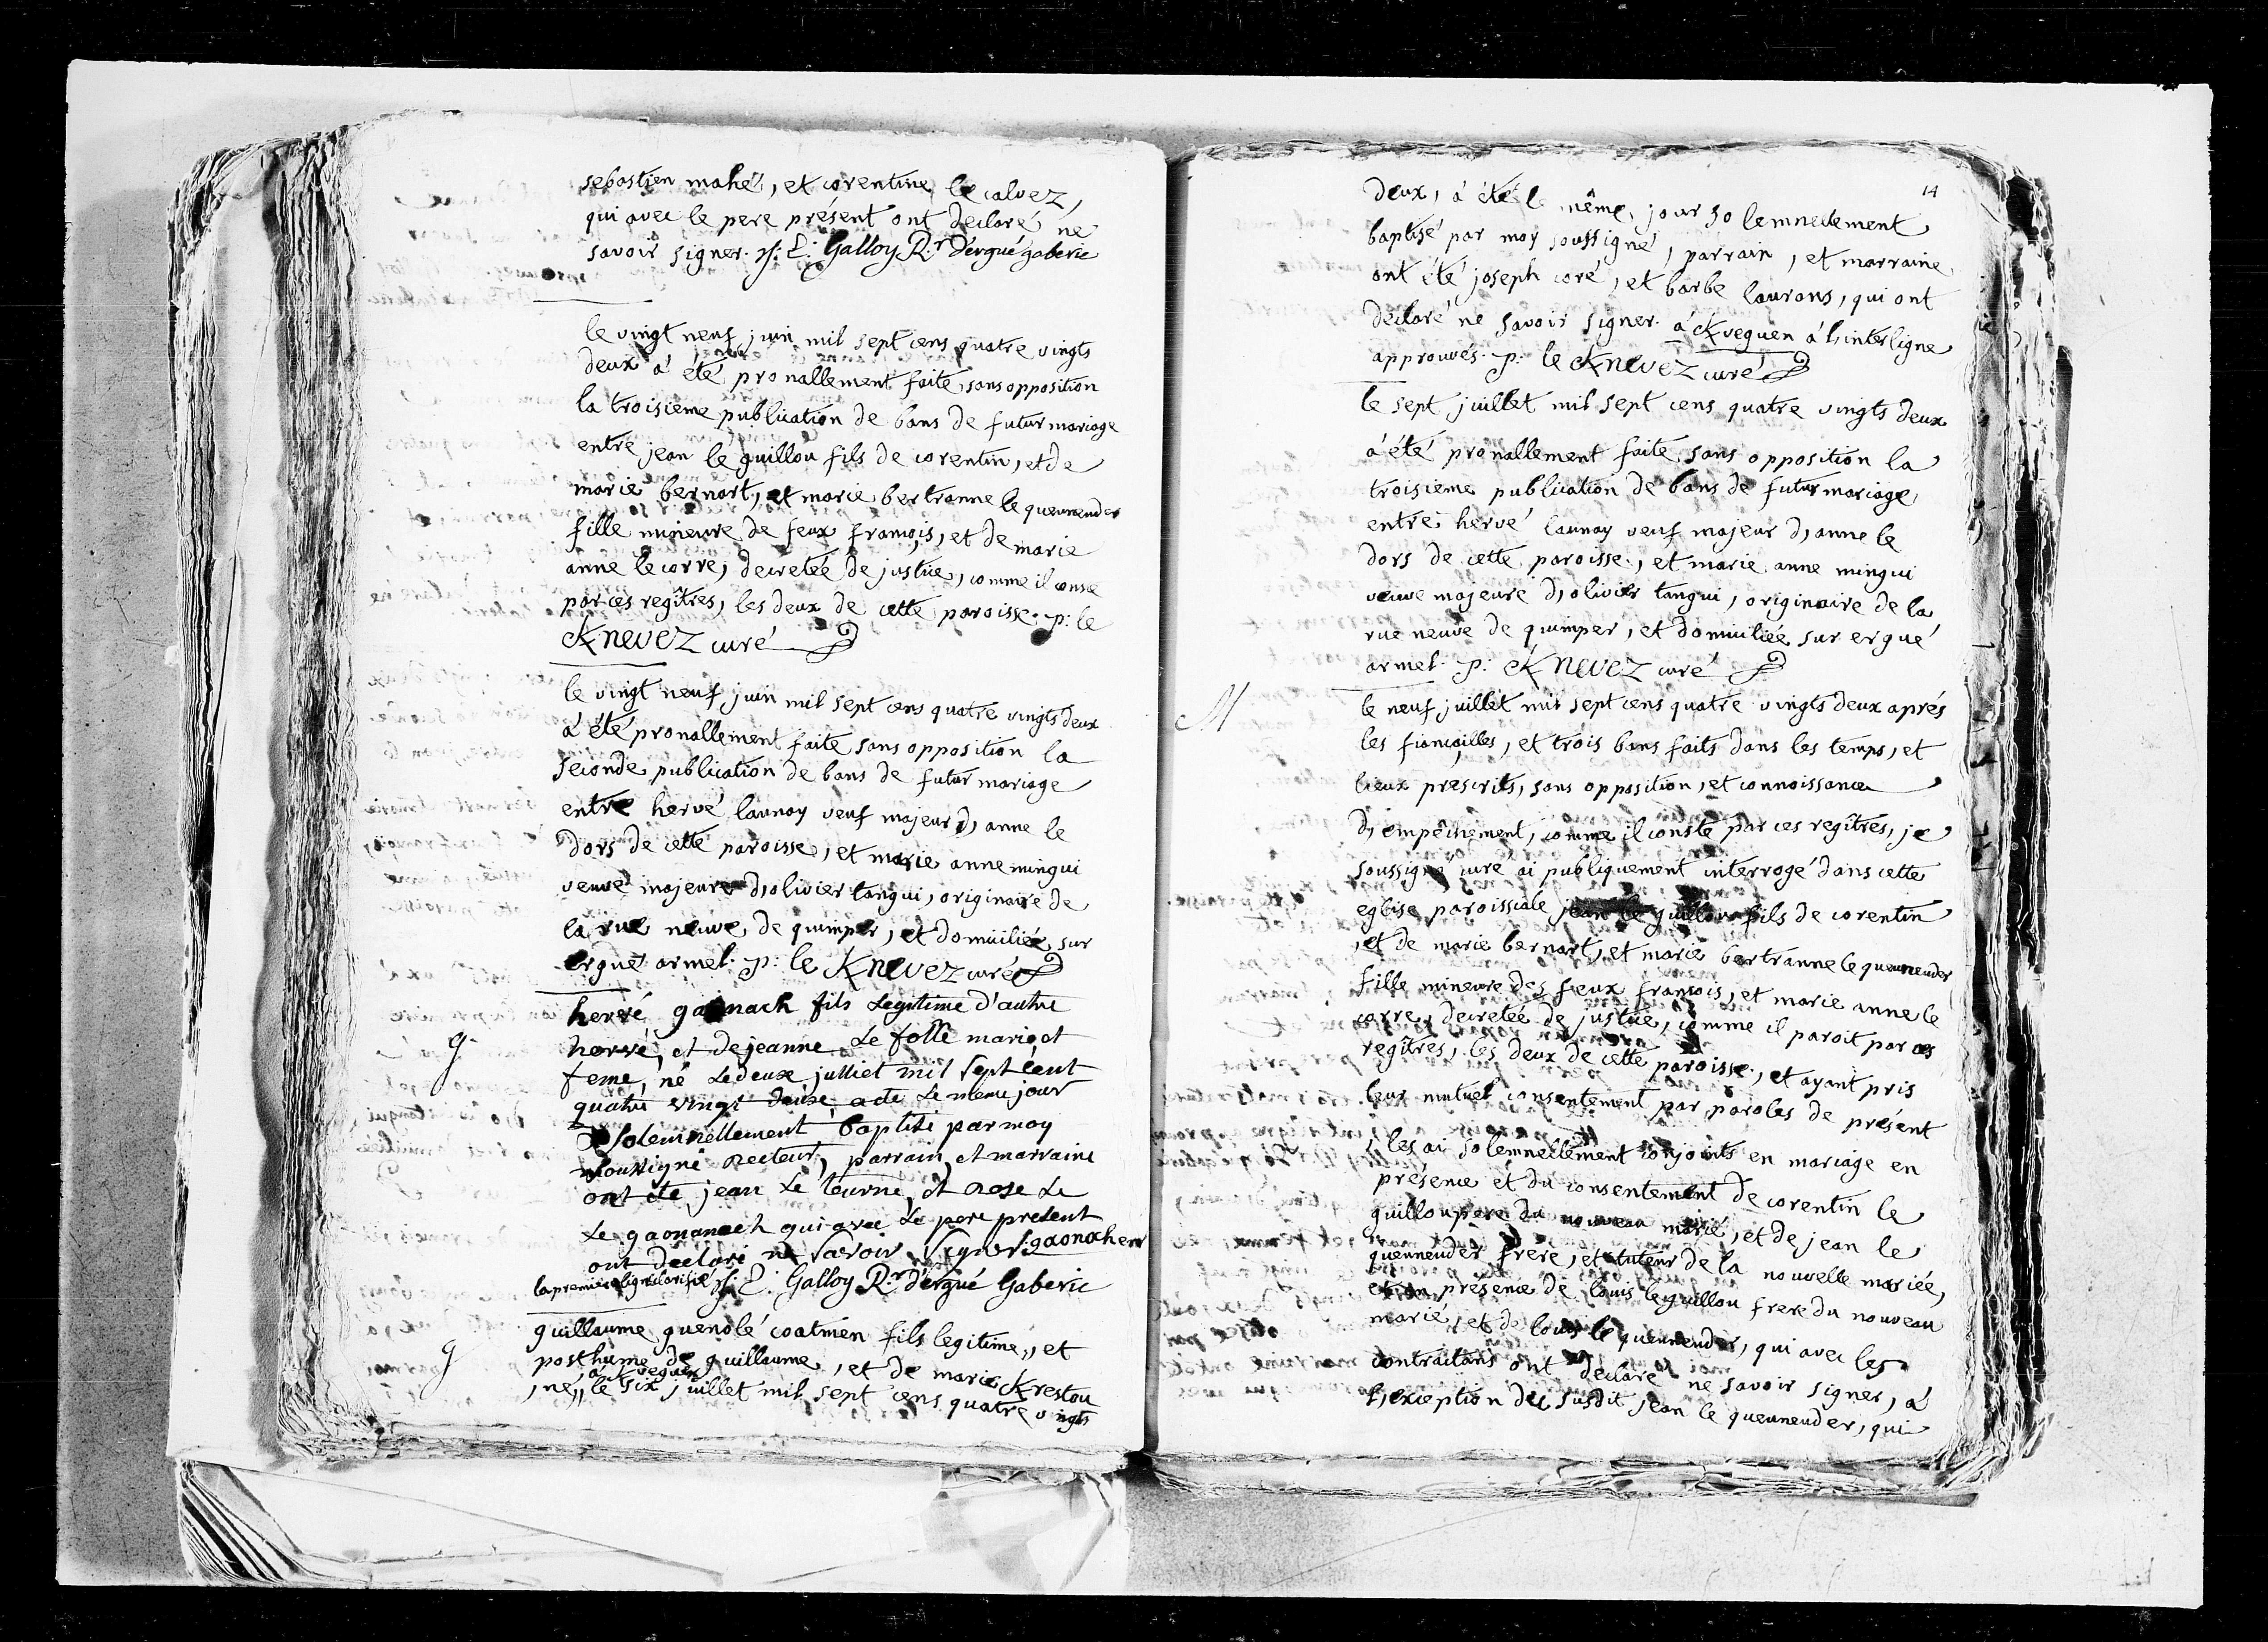 sebastien mahé, et corentine le calvez,
qui avec le pere présent ont declaré ne
savoir signer. Galloy R.r d'ergué gaberic
le vingt neuf juin mil sept cens quatre vingts
deux à été pronallement faite sans opposition
la troisieme publication de bans de futur mariage
entre jean le guillou fils de corentin, et de
marie bernart, et marie bertranne le queuneuder
fille mineure de feux françois, et de marie
anne le corre, decretée de justice, comme il conse
par ces regîtres, les deux de cette paroisse. p: le
Knevez curé
le vingt neuf juin mil sept cens quatre vingts deux
à été pronallement faite sans opposition la
seconde publication de bans de futur mariage
entre hervé launay veuf majeur d, anne le
dors de cette paroisse, et marie anne mingui
veuve majeure d, olivier tangui, originaire de
la rue neuve de quimper, et domiciliée sur
ergué armel. p: le Knevez curé
hervé gaonach fils Legitime d'autre
g
hervé, et de jeanne Le folle mari et
feme, né Le deux julliet mil sept cent
quatre vingt deuxe a ete Le meme jour
solemnellement baptisé par moy
soussigné Recteur, parrain, et marraine
ont ete jean Le tourne, et Rose Le
Le gaonanach qui avec Le pere present
ont declaré ne savoir signer gaonach en
la premiere ligne Galloy R.r d'ergué Gaberic
guillaume guenolé coatmen fils legitime, et
g
posthume de guillaume, et de marie Krestou
à Kveguen
, né,, le six juillet mil sept cens quatre vingts
14
deux, à été le même jour solemnellement
baptisé par moy soussigné, parrain, et marraine
ont été joseph coré, et barbe laurans, qui ont
declaré ne savoir signer. à Kveguen à l, interligne
approuvés. p: le Knevez curé
le sept juillet mil sept cens quatre vingts deux
à été pronallement faite sans opposition la
troisieme publication de bans de futur mariage
entre hervé launay veuf majeur d, anne le
dors de cette paroisse, et marie anne mingui
veuve majeure d, olivier tangui, originaire de la
rue neuve de quimper, et domiciliée sur ergué
armel. p: Knevez curé
M
le neuf juillet mil sept cens quatre vingts deux aprés
les fiançailles, et trois bans faits dans les temps, et
lieux prescrits, sans opposition, et connoissance
d, empêchement, comme il conste par ces regîtres, je
soussigné curé ai publiquement interrogé dans cette
eglise paroissiale jean le guillou fils de corentin
, et de marie bernart, et marie bertranne le queuneuder
fille mineure des feux françois, et marie anne le
corre, decretée de justice, comme il paroit par ces
regîtres, les deux de cette paroisse, et ayant pris
leur mutuel consentement par paroles de présent
, les ai solemnellement conjoints en mariage en
présence et du consentement de corentin le
guillou pere du nouveau marié, et de jean le
queuneuder frere, et tuteur de la nouvelle mariée,
et en présence de louis le guillou frere du nouveau
marié, et de louis le queuneuder, qui avec les
contractans ont declaré ne savoir signer, à
l, exception de susdit jean le queuneuder, qui